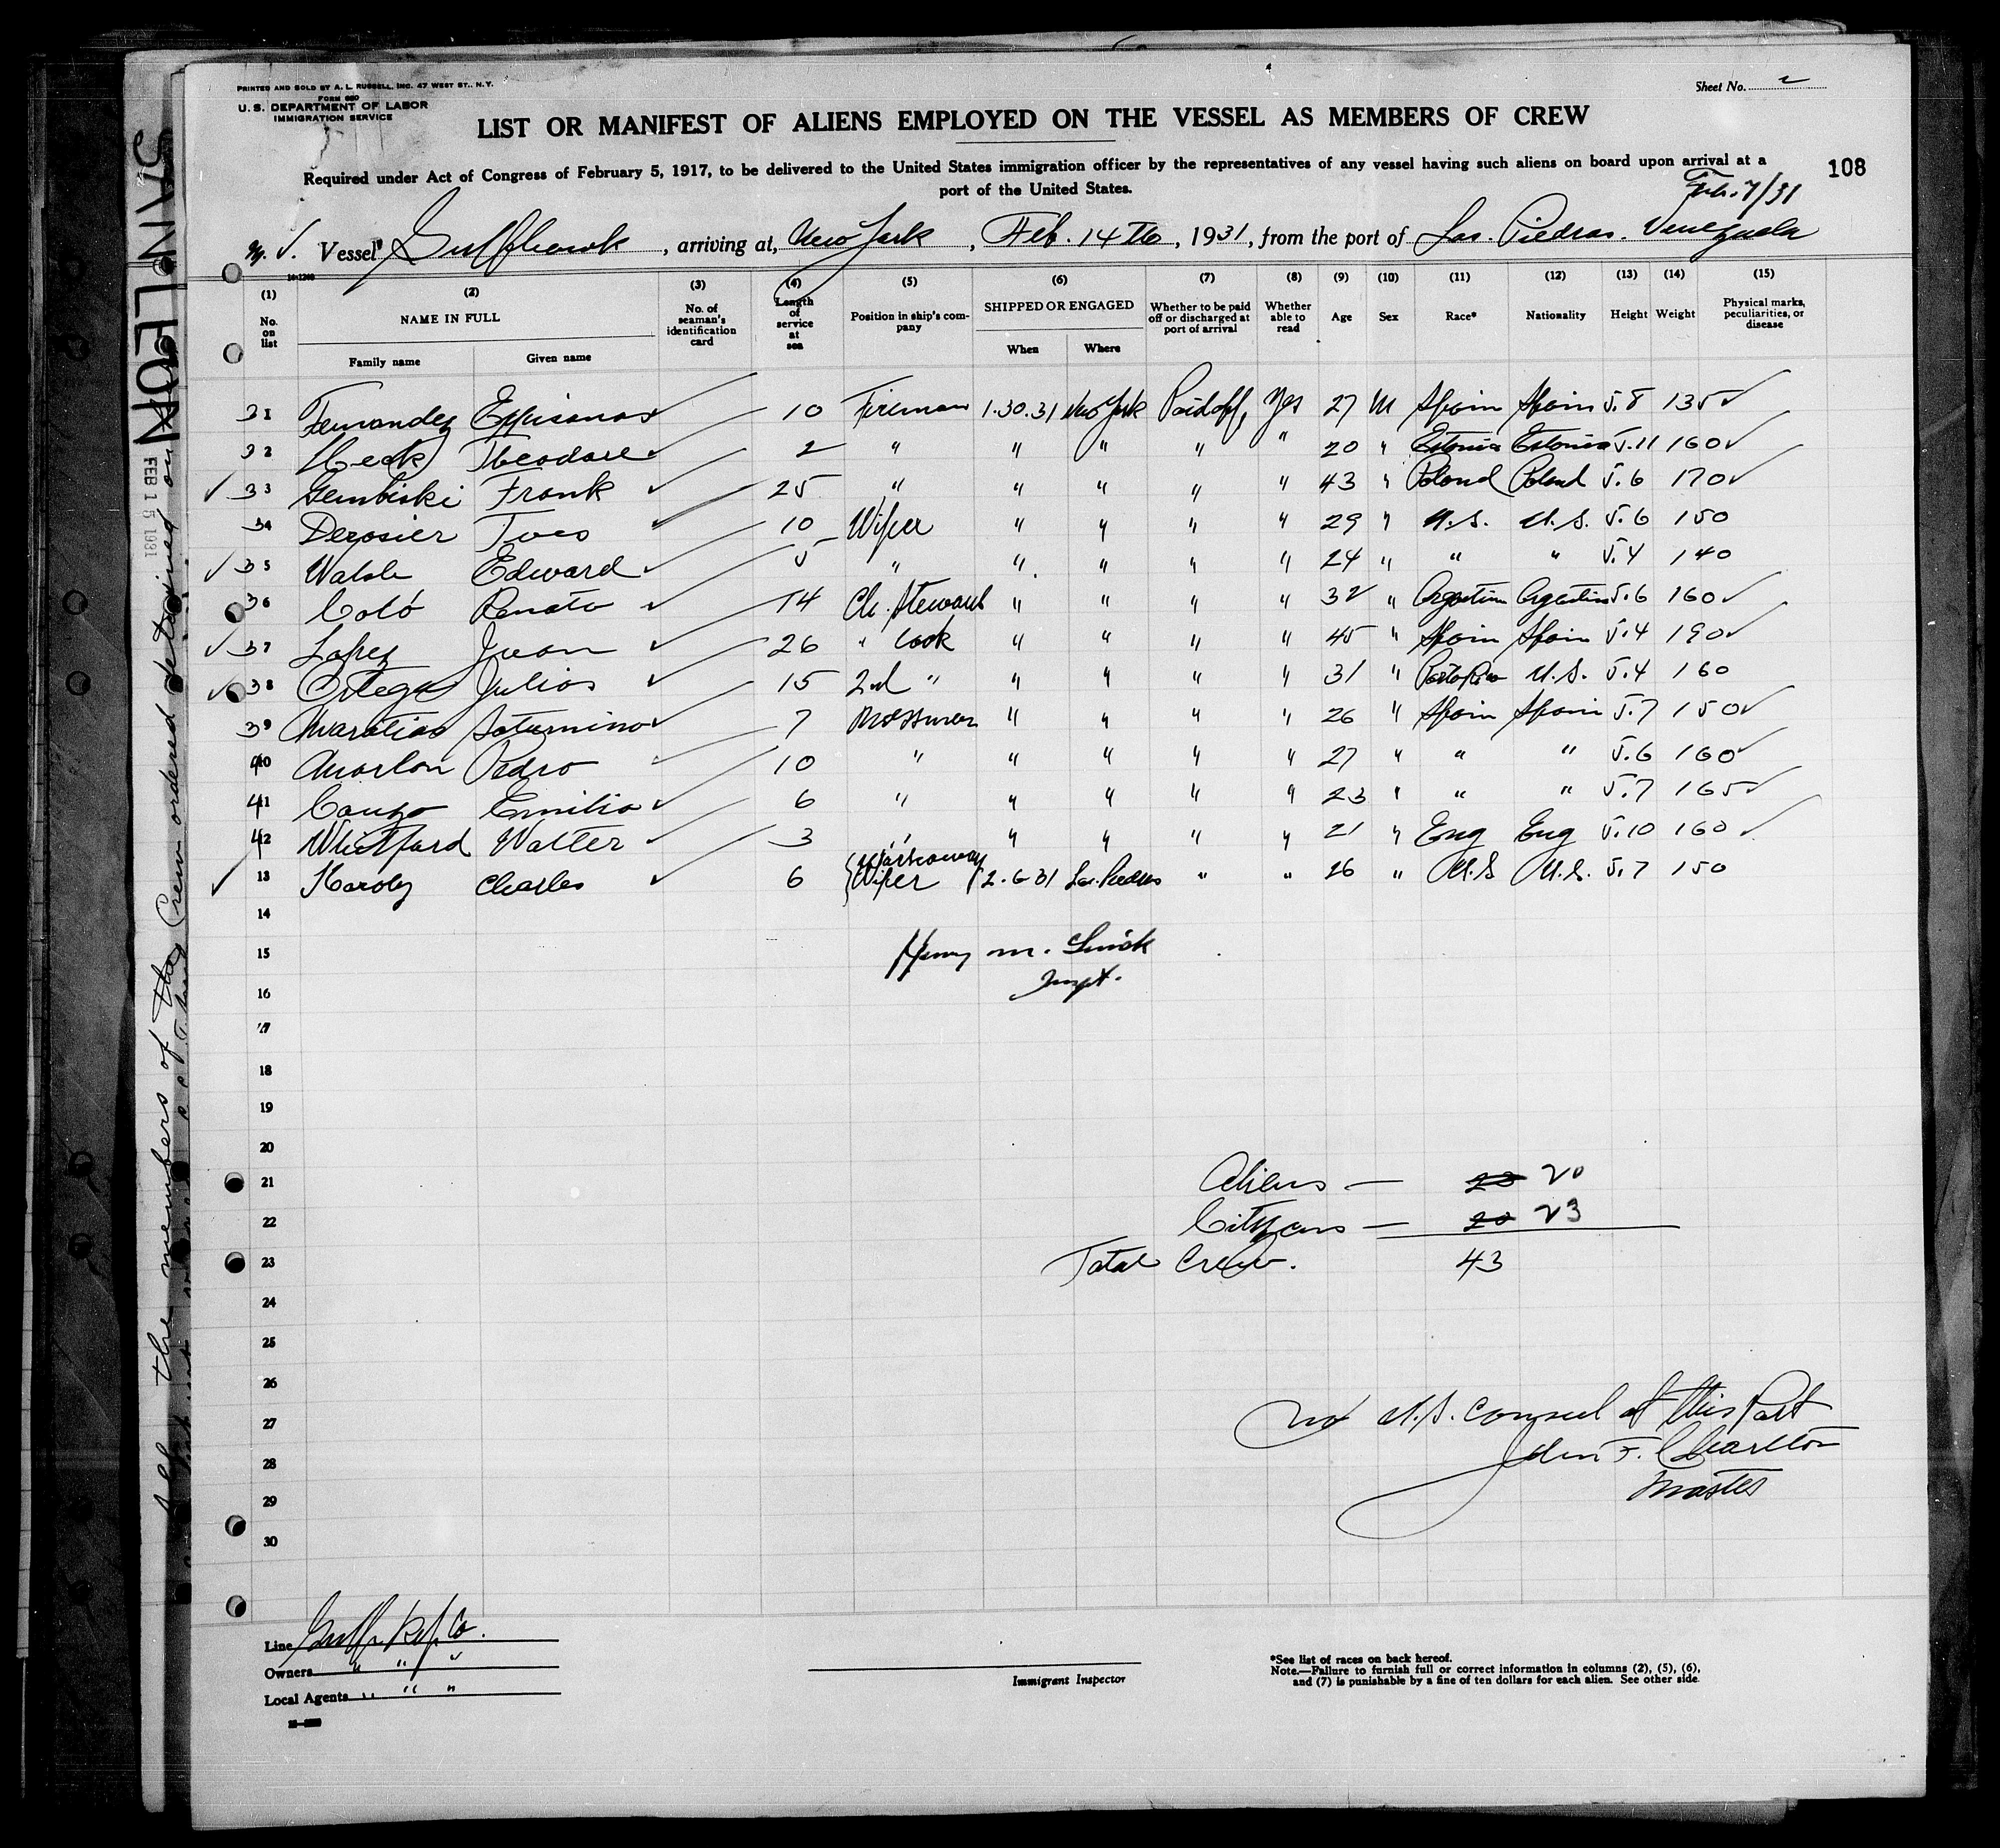 PRINTED AND SOLD BY A. L. RUSSELL, INC. 47 WEST ST., N.Y.
FORM 680
U. S. DEPARTMENT OF LABOR
IMMIGRATION SERVICE
Sheet No. 2
LIST OR MANIFEST OF ALIENS EMPLOYED ON THE VESSEL AS MEMBERS OF CREW
Required under Act of Congress of February 5, 1917, to be delivered to the United States immigration officer by the representatives of any vessel having such aliens on board upon arrival at a
port of the United States.
108
Feb. 7/31
M. V. Vessel Gulfhawk, arriving at, New York, Feb. 14th, 1931, from the port of Las Piedras. Venezuela
(1) (2) (3) (4) (5) (6) (7) (8) (9) (10) (11) (12) (13) (14) (15)
No. on list NAME IN FULL No. of seaman's identification card Length of service at sea Position in ship's company SHIPPED OR ENGAGED Whether to be paid off or discharged at port of arrival Whether able to read Age Sex Race* Nationality Height Weight Physical marks, peculiarities, or disease
Family name Given name When Where
31 Fernandez 10 Fireman 1.30.31 New York Paidoff, Yes 27 M Spain Spain 5.8 135 ✓
32 Heck Theodore ✓ 2 " " " " " 20 " Estonia Estonia 5.11 160 ✓
✓ 33 Gembiski Frank ✓ 25 " " " " " 43 " Poland Poland 5.6 170 ✓
34 Derosier ✓ 10 Wiper " " " " 29 " U.S. U.S. 5.6 150
✓ 35 Walsh Edward ✓ 5 " " " " " 24 " " " 5.4 140
36 Coló Renato ✓ 14 Ch. Steward " " " " 32 " Argentine Argentine 5.6 160 ✓
✓ 37 Lopez Juan ✓ 26 " Cook " " " " 45 " Spain Spain 5.4 190 ✓
✓ 38 Ortega Julios ✓ 15 2nd " " " " " 31 " Porto Rico U.S. 5.4 160
39 Saturnino ✓ 7 Messman " " " " 26 " Spain Spain 5.7 150 ✓
40 Pedro ✓ 10 " " " " " 27 " " " 5.6 160 ✓
41 Couzo Emilio ✓ 6 " " " " " 23 " " " 5.7 165 ✓
42 Whitford Walter ✓ 3 " " " " " 21 " Eng Eng 5.10 160 ✓
✓ 13 Hardy Charles ✓ 6 Workaway Wiper 2.6.31 Las Piedras " " 26 " U.S U.S. 5.7 150
14
15 Henry M.
16 Inspt.
17
18
19
20
21 Aliens — 23 20
22 Citizens — 20 23
23 Total Crew. 43
24
25
26
27 No U.S. Consul at this Port
28 John F. Charlton
29 Master
30
Line Gulf Ref. Co.
Owners " " "
Local Agents " " "
Immigrant Inspector
*See list of races on back hereof.
Note.—Failure to furnish full or correct information in columns (2), (5), (6),
and (7) is punishable by a fine of ten dollars for each alien. See other side.
SAN LEON
FEB 15 1931
All the members of the Crew ordered detained on